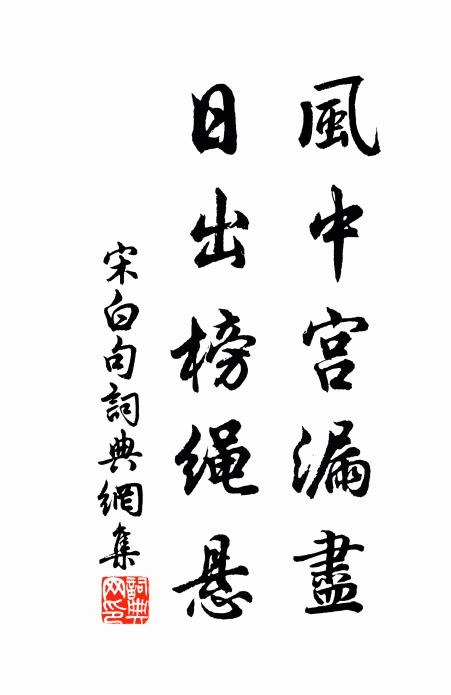 風中宫漏盡
日出榜绳悬
宋白句詞典網集
詞典網印